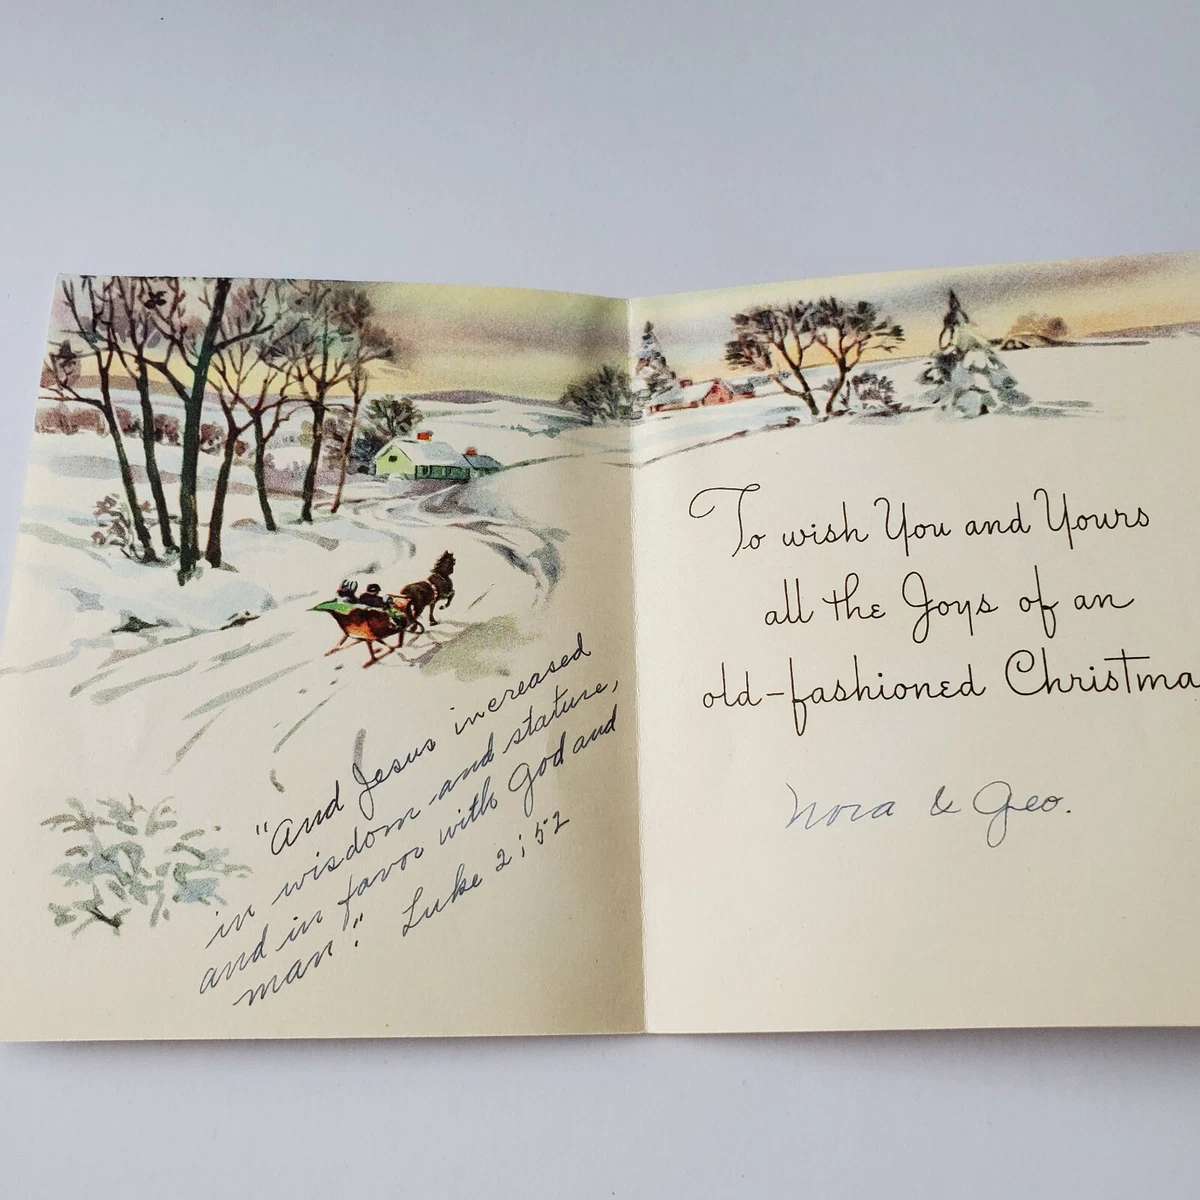 "And Jesus increased
in wisdom and stature,
and in favor with God and
man." Luke 2:52
To wish You and Yours
all the Joys of an
old-fashioned Christma
Nora & Geo.